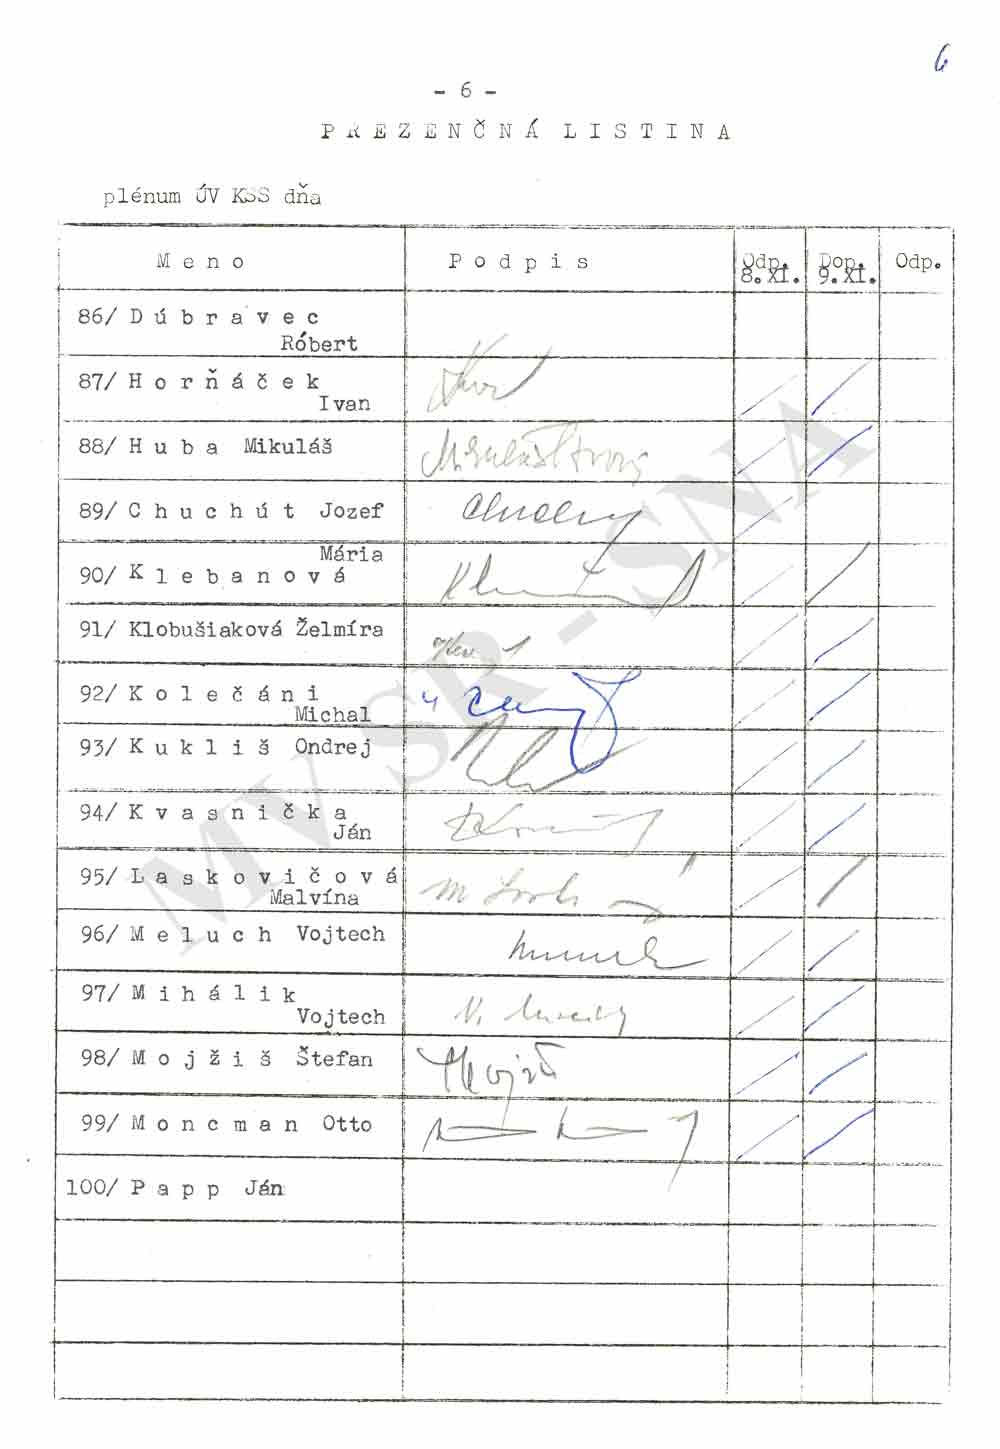 6
- 6 -
PREZENČNÁ LISTINA
plénum ÚV KSS dňa
Meno Podpis Odp. 8.XI. Dop. 9.XI. Odp.
86/ Dúbravec
Róbert
87/ Horňáček
Ivan
88/ Huba Mikuláš
89/ Chuchút Jozef
Mária
90/ Klebanová
91/ Klobušiaková Želmíra
92/ Kolečáni
Michal
93/ Kukliš Ondrej
94/ Kvasnička
Ján
95/ Laskovičová
Malvína
96/ Meluch Vojtech
97/ Mihálik
Vojtech
98/ Mojžiš Štefan
99/ Moncman Otto
100/ Papp Ján
MV SR - SNA